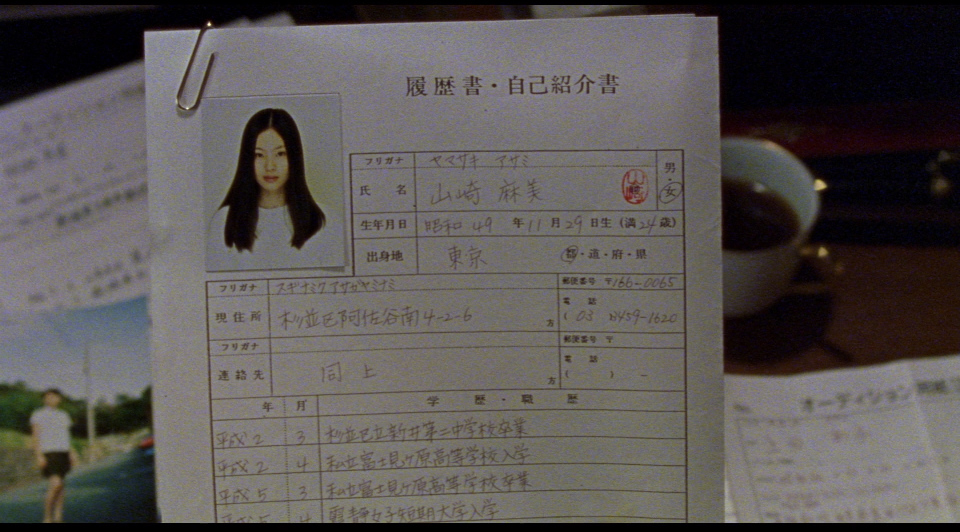 履歴書・自己紹介書
フリガナ ヤマザキ アサミ
氏名 山崎 麻美
男・女
生年月日 昭和 49 年 11 月 29 日生 (満 24 歳)
出身地 東京 都・道・府・県
フリガナ スギナミクアサガヤミナミ
郵便番号 〒166-0065
現住所 杉並区阿佐谷南4-2-6 方
電話 ( 03 )3459-1620
フリガナ
郵便番号 〒
連絡先 同上 方
電話 ( ) -
年 月 学歴・職歴
平成2 3 杉並区立新井第二中学校卒業
平成2 4 私立富士見ヶ原高等学校入学
平成5 3 私立富士見ヶ原高等学校卒業
平成5 4 女子短期大学入学
オーディション